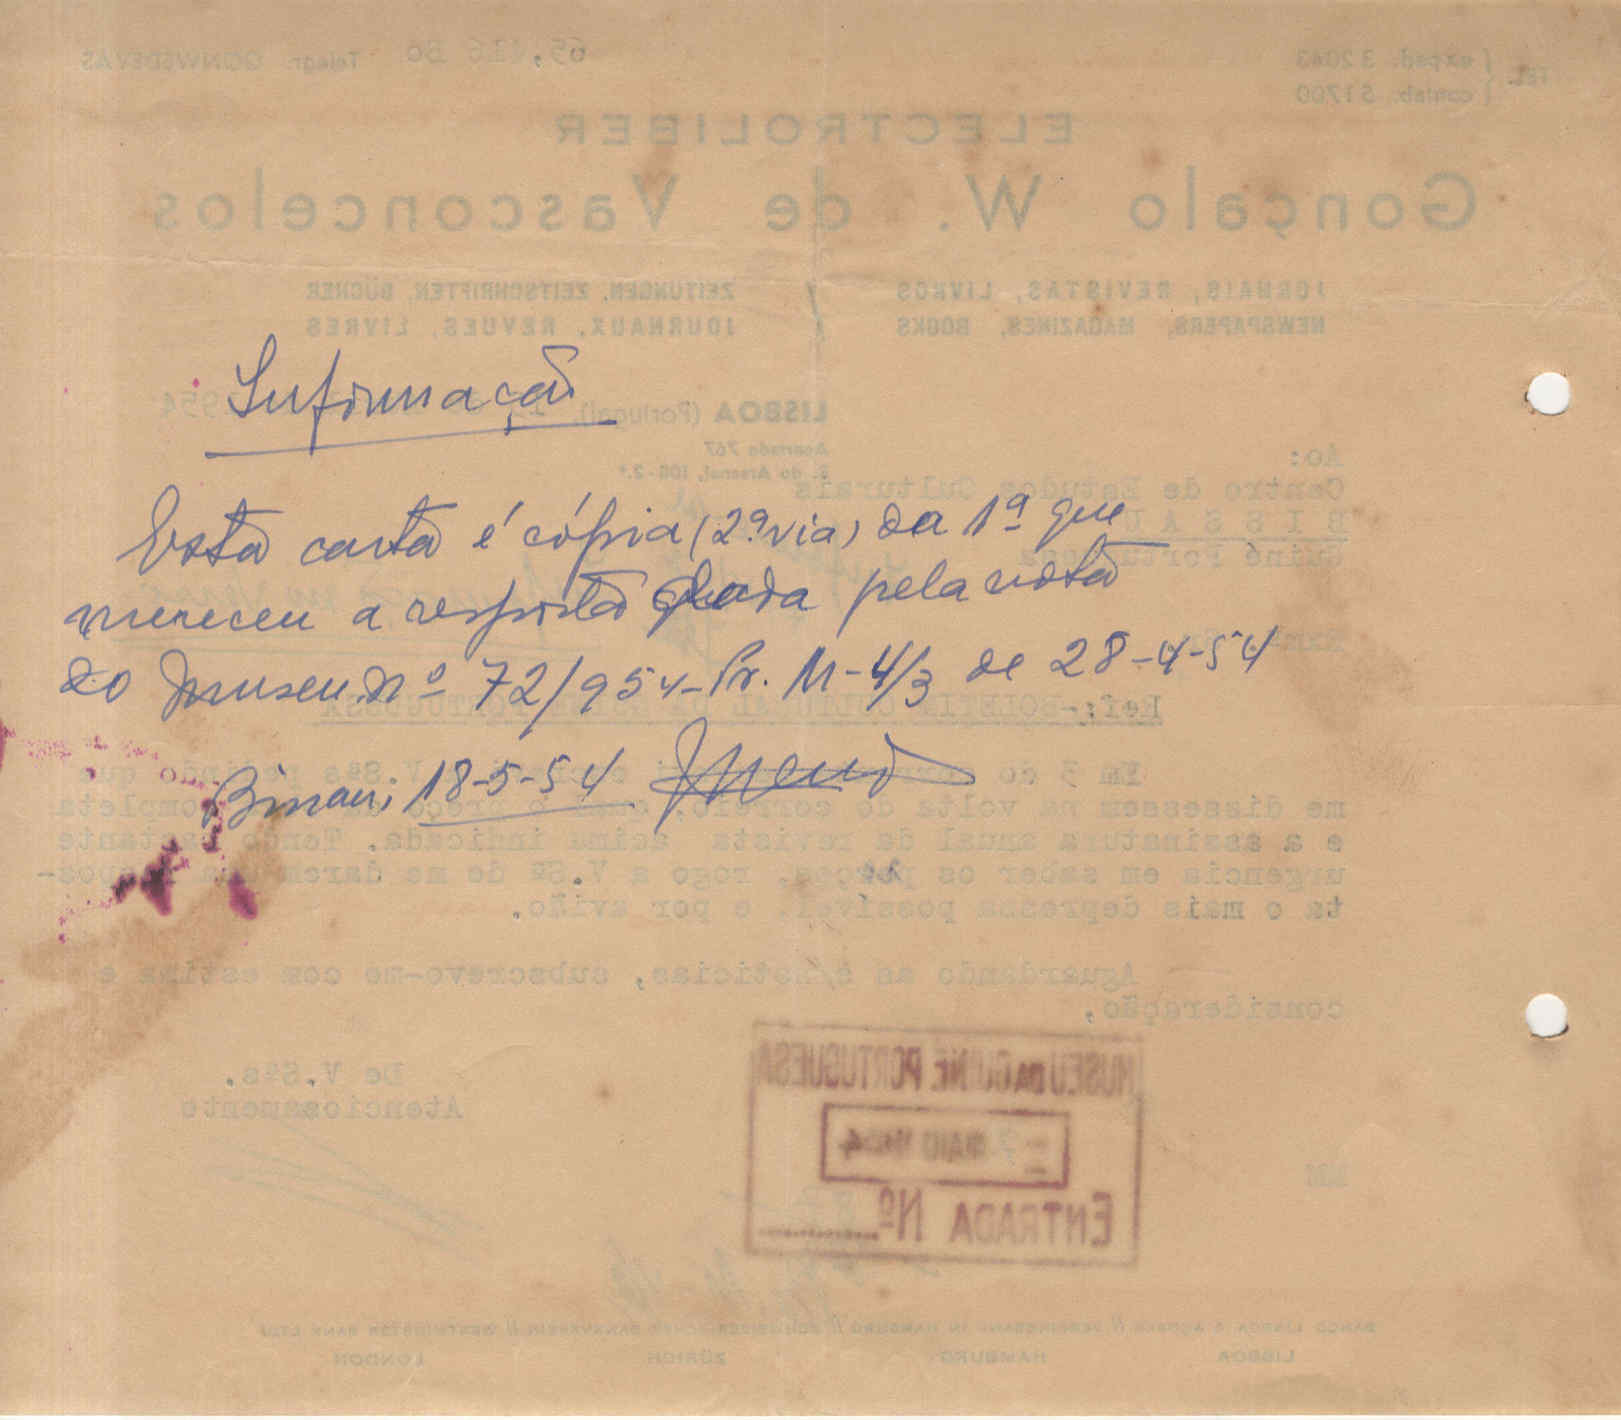 Informação
Esta carta é cópia (2ª via) da 1ª que
mereceu a resposta dada pela nota
do Museu nº 72/954-Pr. M-4/3 de 28-4-54
Bissau, 18-5-54
65,
Telegr. GONWEDEVAS
TEL. exped. 32043
contab. 51700
ELECTROLIBER
Gonçalo W. de Vasconcelos
JORNAIS, REVISTAS, LIVROS
NEWSPAPERS, MAGAZINES, BOOKS
ZEITUNGEN, ZEITSCHRIFTEN, BÜCHER
JOURNAUX, REVUES, LIVRES
LISBOA (Portugal),
Apartado 767
R. do Arsenal, 108-2.º
Ao:
Centro de Estudos Culturais
BISSAU
Guiné Portuguesa
Ref:-BOLETIM CULTURAL DA GUINÉ PORTUGUESA
Em 3 do V.Sªs pedindo que
me dissessem na volta do correio, qual o preço da completa
e a assinatura anual da revista acima indicada. Tendo bastante
urgencia em saber os preços, rogo a V.Sª de me darem uma respos-
ta o mais depressa possível e por avião.
Aguardando as s/noticias, subscrevo-me com estima e
consideração,
De V.Sªs.
Atenciosamente
MUSEU DA GUINÉ PORTUGUESA
7 MAIO 1954
ENTRADA Nº
MM
BANCO LISBOA & AÇORES // VEREINSBANK IN HAMBURG // SCHWEIZERISCHER BANKVEREIN // WESTMINSTER BANK LTD/
LISBOA HAMBURG ZÜRICH LONDON